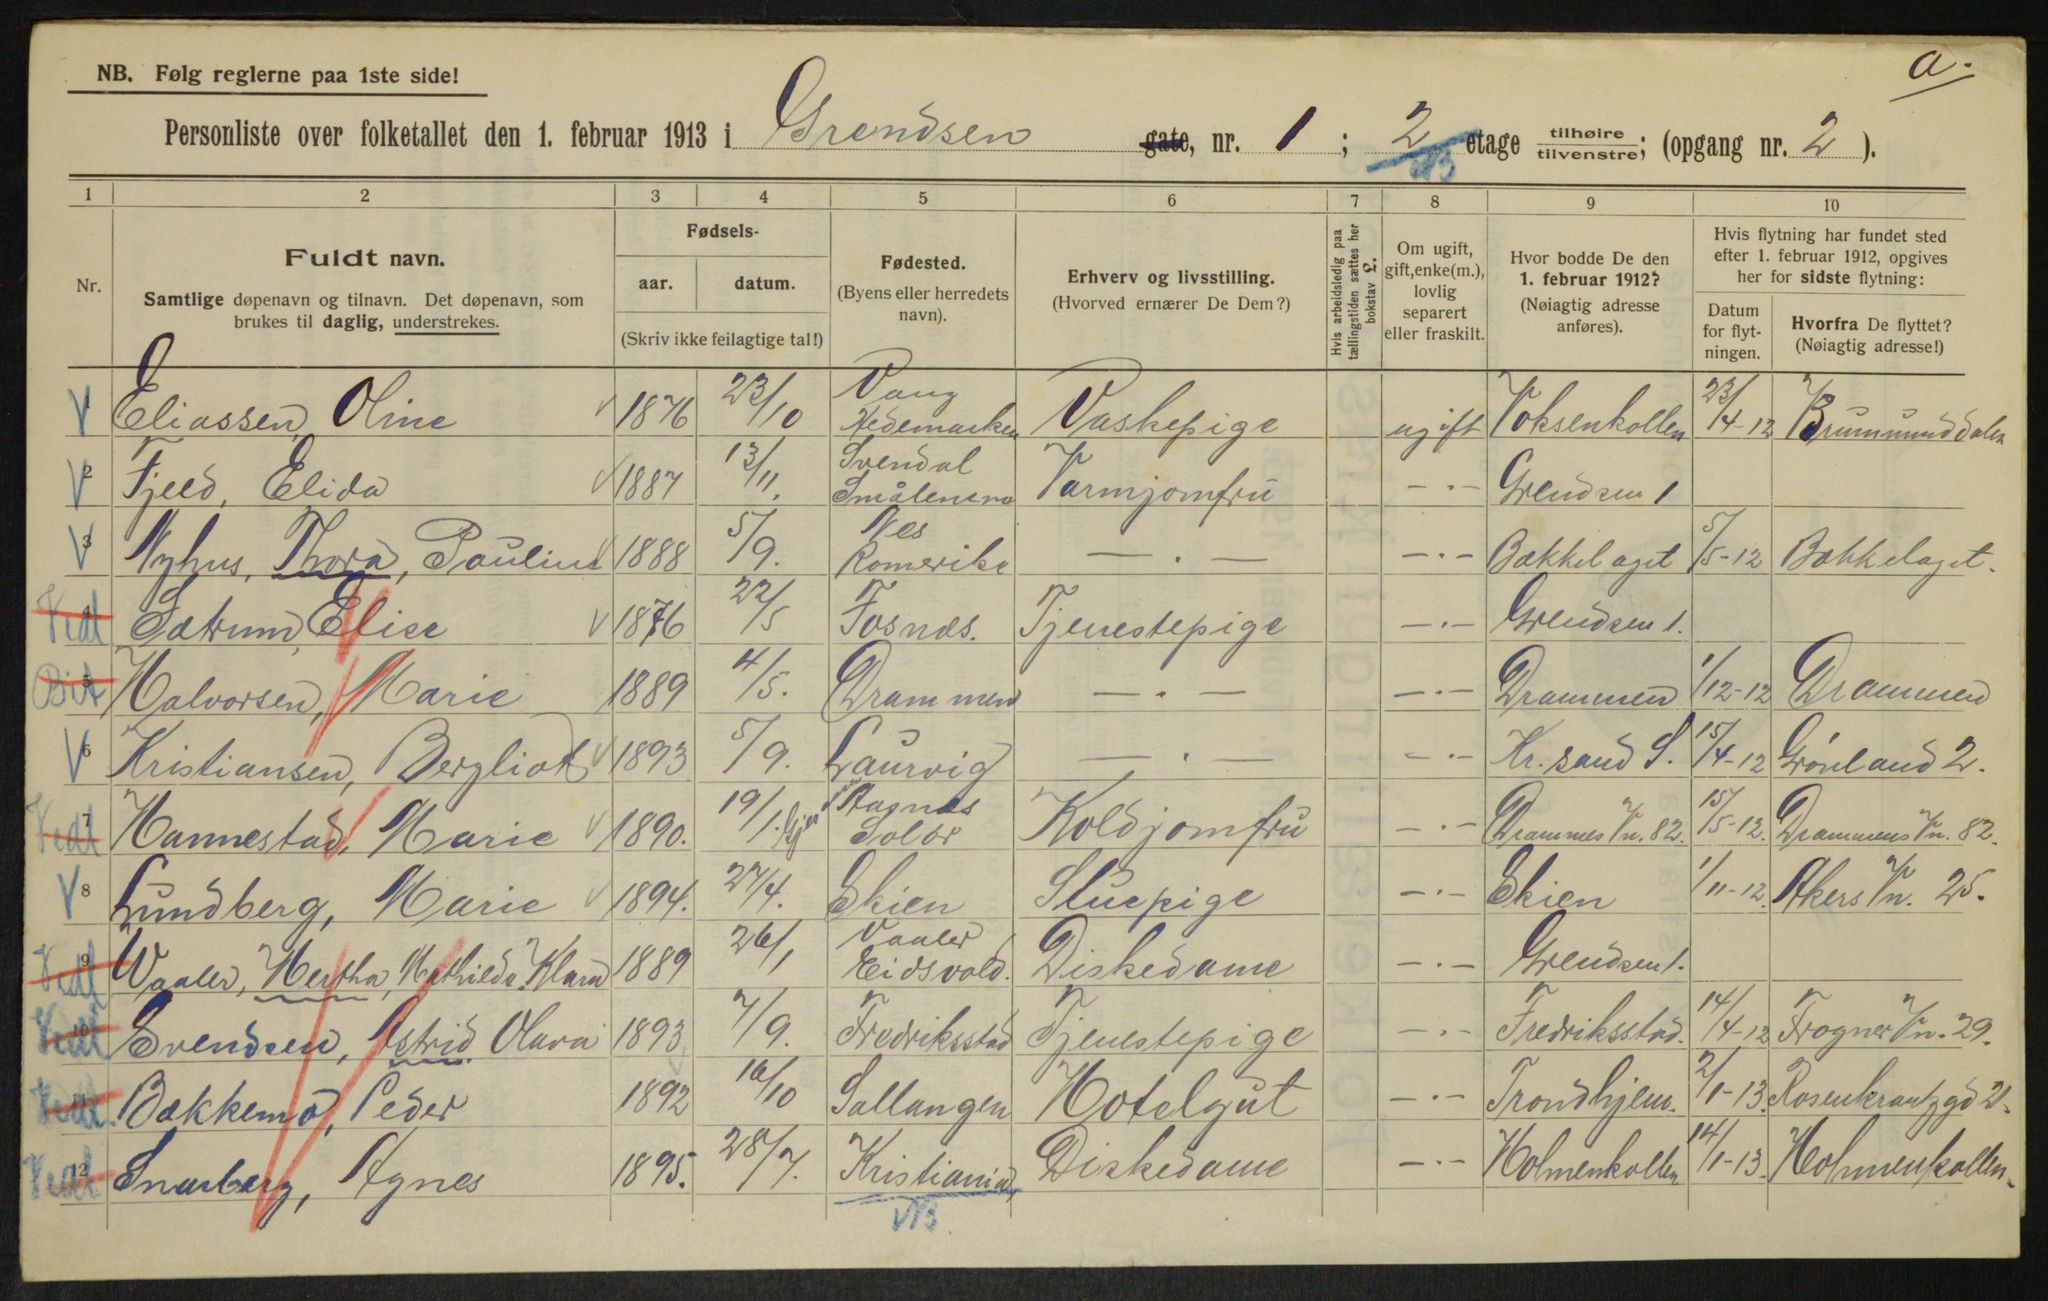 a.
NB. Følg reglerne paa 1ste side!
Personliste over folketallet den 1. februar 1913 i Grendsen gate, nr. 1 ; 2 etage tilhøire/tilvenstre; (opgang nr. 2 ).
1 2 3 4 5 6 7 8 9 10
Nr.
Fuldt navn.
Samtlige døpenavn og tilnavn. Det døpenavn, som brukes til daglig, understrekes.
Fødsels-
aar. datum.
(Skriv ikke feilagtige tal!)
Fødested.
(Byens eller herredets navn).
Erhverv og livsstilling.
(Hvorved ernærer De Dem?)
Hvis arbeidsledig paa tællingstiden sættes her bokstav L.
Om ugift, gift, enke(m.), lovlig separert eller fraskilt.
Hvor bodde De den 1. februar 1912?
(Nøiagtig adresse anføres).
Hvis flytning har fundet sted efter 1. februar 1912, opgives her for sidste flytning:
Datum for flytningen.
Hvorfra De flyttet?
(Nøiagtig adresse!)
V 1 Eliassen, Oline 1876 23/10 Vang Hedemarken Vaskepige ugift Voksenkollen 23/4-12 Brummunddalen
V 2 Fjeld, Elida 1887 13/11. Svendal Smålenene Varmjomfru — " — Grendsen 1
V 3 Nyhus, Thora, Pauline 1888 5/9. Nes Romerike — " — — " — Bækkelaget 5/5-12 Bækkelaget.
Vedt 4 Sætrum, Elise 1876 22/5 Fosnæs. Tjenestepige — " — Grendsen 1.
5 Halvorsen, Marie 1889 4/5. Drammen — " — — " — Drammen 1/12-12 Drammen
V 6 Kristiansen, Bergliot 1893 5/9. Laurvig — " — — " — Kr.sand S. 15/4-12 Grønland 2.
Vedt 7 Hannestad, Marie 1890. 19/1. Solør Koldjomfru — " — Drammens Vn. 82. 15/5-12. Drammens Vn. 82.
V 8 Lundberg, Marie 1894. 27/4. Skien Stuepige — " — Skien 1/11-12. Akers Vn. 25.
Vedt 9 Vaaler, Hertha, Mathilde, Klara 1889 26/1 Vaaler Eidsvold. Diskedame — " — Grendsen 1.
Vedt 10 Svendsen, Astrid Olava 1893 7/9. Fredriksstad Tjenestepige — " — Fredriksstad. 14/4-12 Frogner Vn. 29.
Vedt. 11 Bækkemo, Peder 1892 16/10 Sallangen Hotelgut — " — Trondhjem. 2/1-13. Rosenkrantzgd 21.
Vedt 12 Snarberg, Agnes 1895. 28/7. Kristiania, Diskedame — " — Holmenkollen 14/1-13. Holmenkollen.